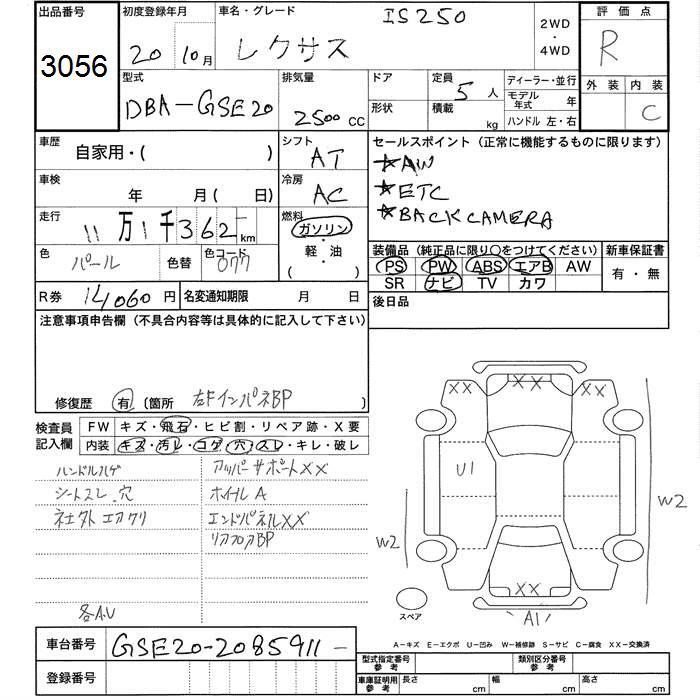 出品番号
3056
初度登録年月
20 10月
車名・グレード
IS250
レクサス
2WD
・
4WD
評価点
R
外装 内装
C
型式
DBA-GSE20
排気量
2500 CC
ドア
形状
定員
5 人
積載
kg
ディーラー・並行
モデル年式 年
ハンドル 左・右
車歴
自家用・( )
シフト
AT
セールスポイント(正常に機能するものに限ります)
★AW
★ETC
★BACK CAMERA
車検
年 月(日)
冷房
AC
走行
11万1千362km
燃料
ガソリン
・
軽・油
( )
色
パール
色替
色コード
077
装備品(純正品に限り〇をつけてください)
PS PW ABS エアB AW
SR ナビ TV カワ
新車保証書
有・無
R券 14060円
名変通知期限 月 日
後日品
注意事項申告欄(不具合内容等は具体的に記入して下さい)
修復歴 有 〔箇所 左Fインパネ BP 〕
検査員
記入欄
FW キズ・飛石・ヒビ割・リペア跡・X要
内装 キズ・汚レ・コゲ・穴・スレ・キレ・破レ
ハンドルハゲ
シートスレ.穴
ネ士外 エアクリ
各A.U
アッパーサポートXX
ホイールA
エンドパネルXX
リアフロアBP
XX
XX
XX
U1
W2
W2
XX
A1
スペア
A-キズ E-エクボ U-凹み W-補修跡 S-サビ C-腐食 XX-交換済
車台番号
GSE20-2085911-
登録番号
型式指定番号
参考
類別区分番号
参考
車庫証明用
参考
長さ cm
幅 cm
高さ cm